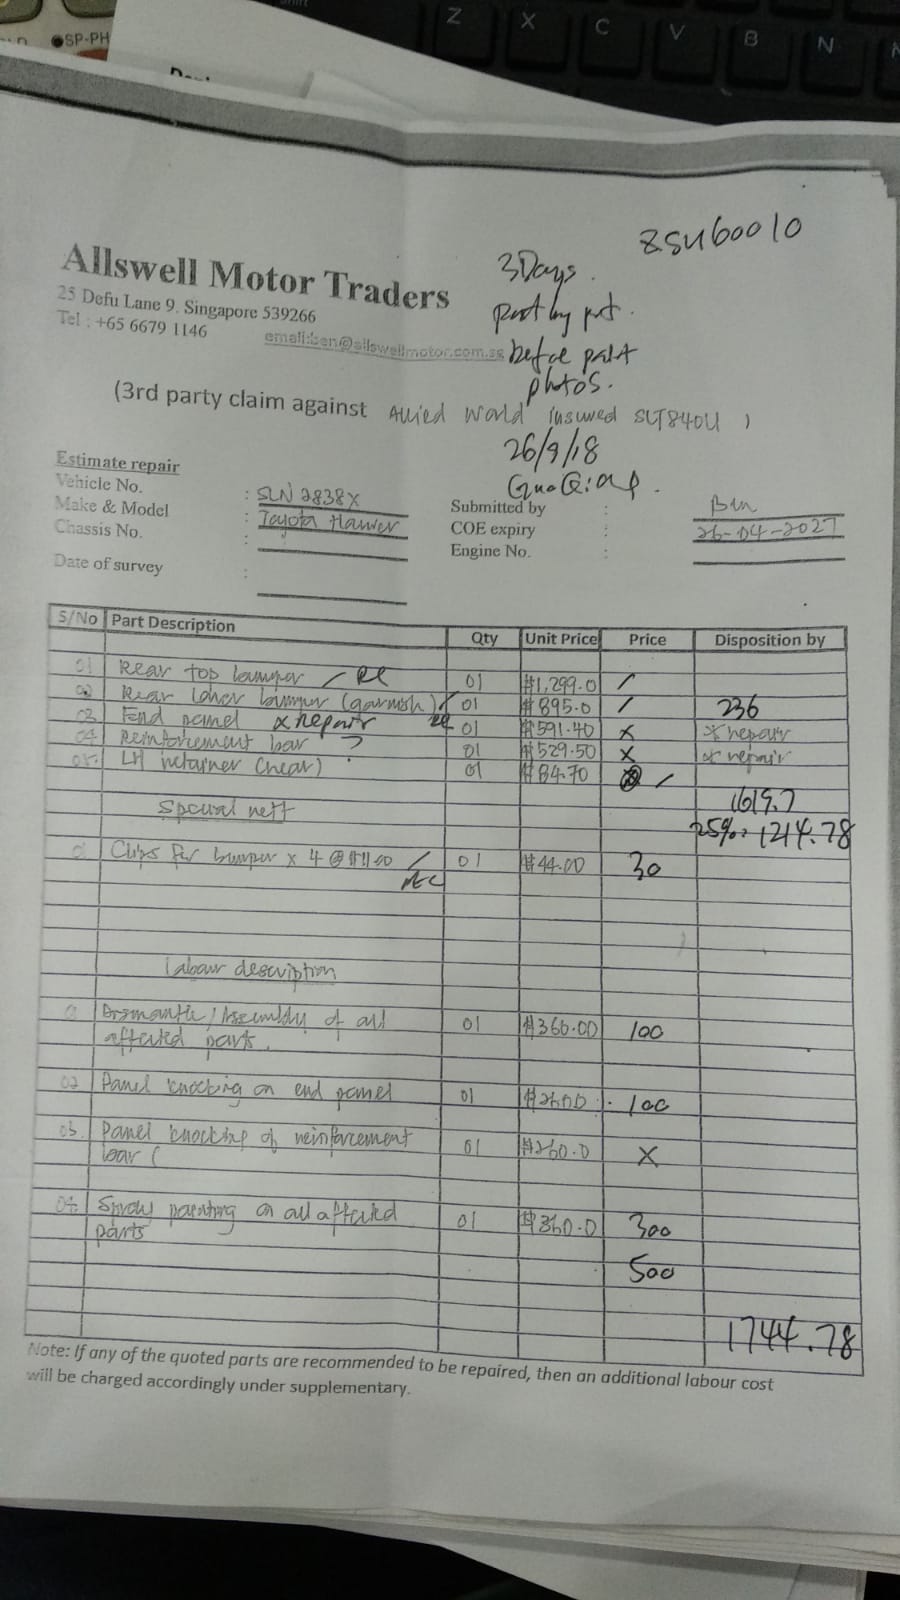 Z
X
C
V
B
N
SP-PH
8SU60010
3Days.
Allswell Motor Traders
25 Defu Lane 9. Singapore 539266
Tel : +65 6679 1146
email:ben@allswellmotor.com.sg
part by part.
before paint
photos.
(3rd party claim against Allied World insured SLT840U )
26/9/18
Estimate repair
Vehicle No. : SLN 2838X
Make & Model : Toyota Harrier
Chassis No. :
Date of survey :
Submitted by : Ben
COE expiry : 26-04-2027
Engine No. :
S/No Part Description Qty Unit Price Price Disposition by
01 Rear top bumper / RC 01 $1,299.0 /
02 Rear lower bumper (garnish) 01 $895.0 / 236
03 End panel x repair 01 $591.40 x * repair
04. Reinforcement bar ? 01 $529.50 x * repair
05. LH retainer (rear) 01 $84.70 /
1619.7
Special nett
25%: 1214.78
Clips for bumper x 4 @ $11.00 / 01 $44.00 30
Labour description
Dismantle / Assembly of all 01 $360.00 100
affected parts.
02 Panel knocking on end panel 01 100
03. Panel knocking of reinforcement 01 $260.0 X
bar (
04. Spray painting on all affected 01 $360.0 300
parts
500
1744.78
Note: If any of the quoted parts are recommended to be repaired, then an additional labour cost
will be charged accordingly under supplementary.